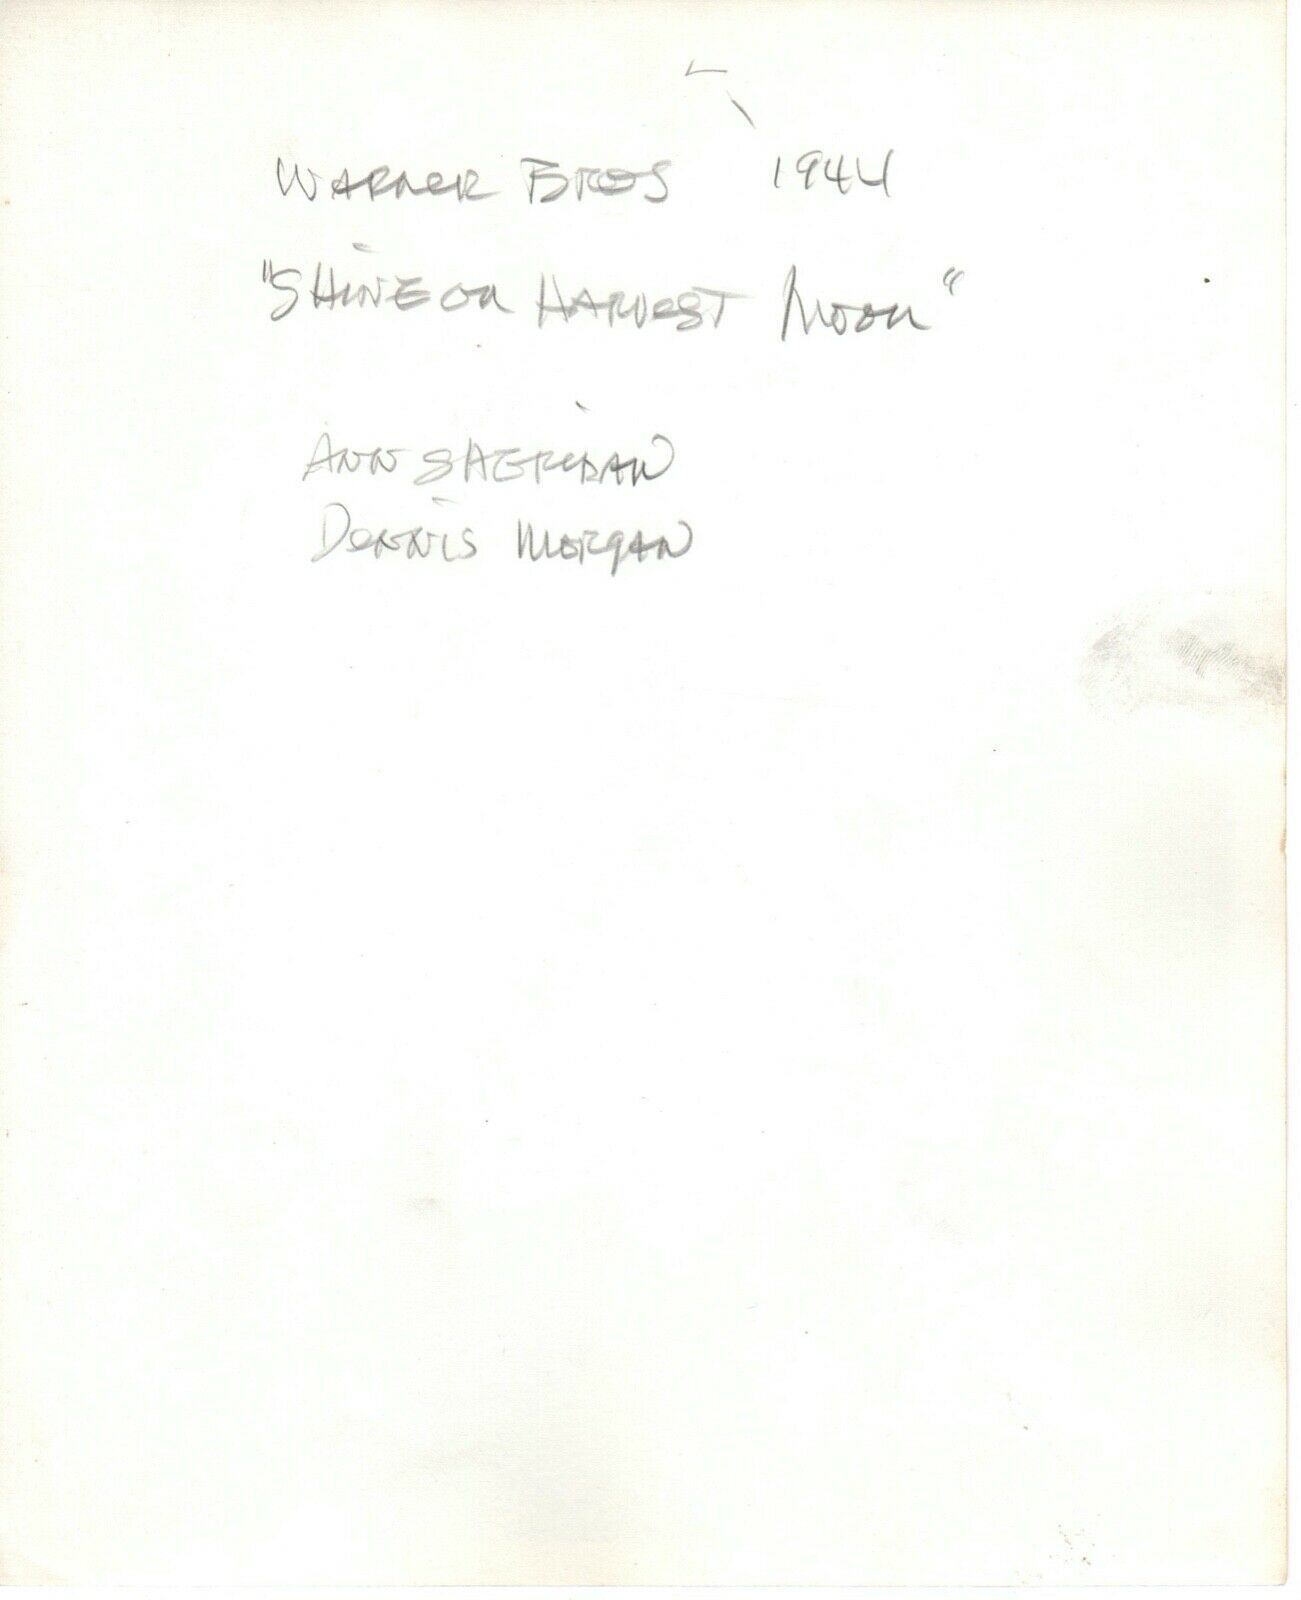 WARNER BROS 1944
"SHINE ON HARVEST MOON"
ANN SHERIDAN
DENNIS MORGAN